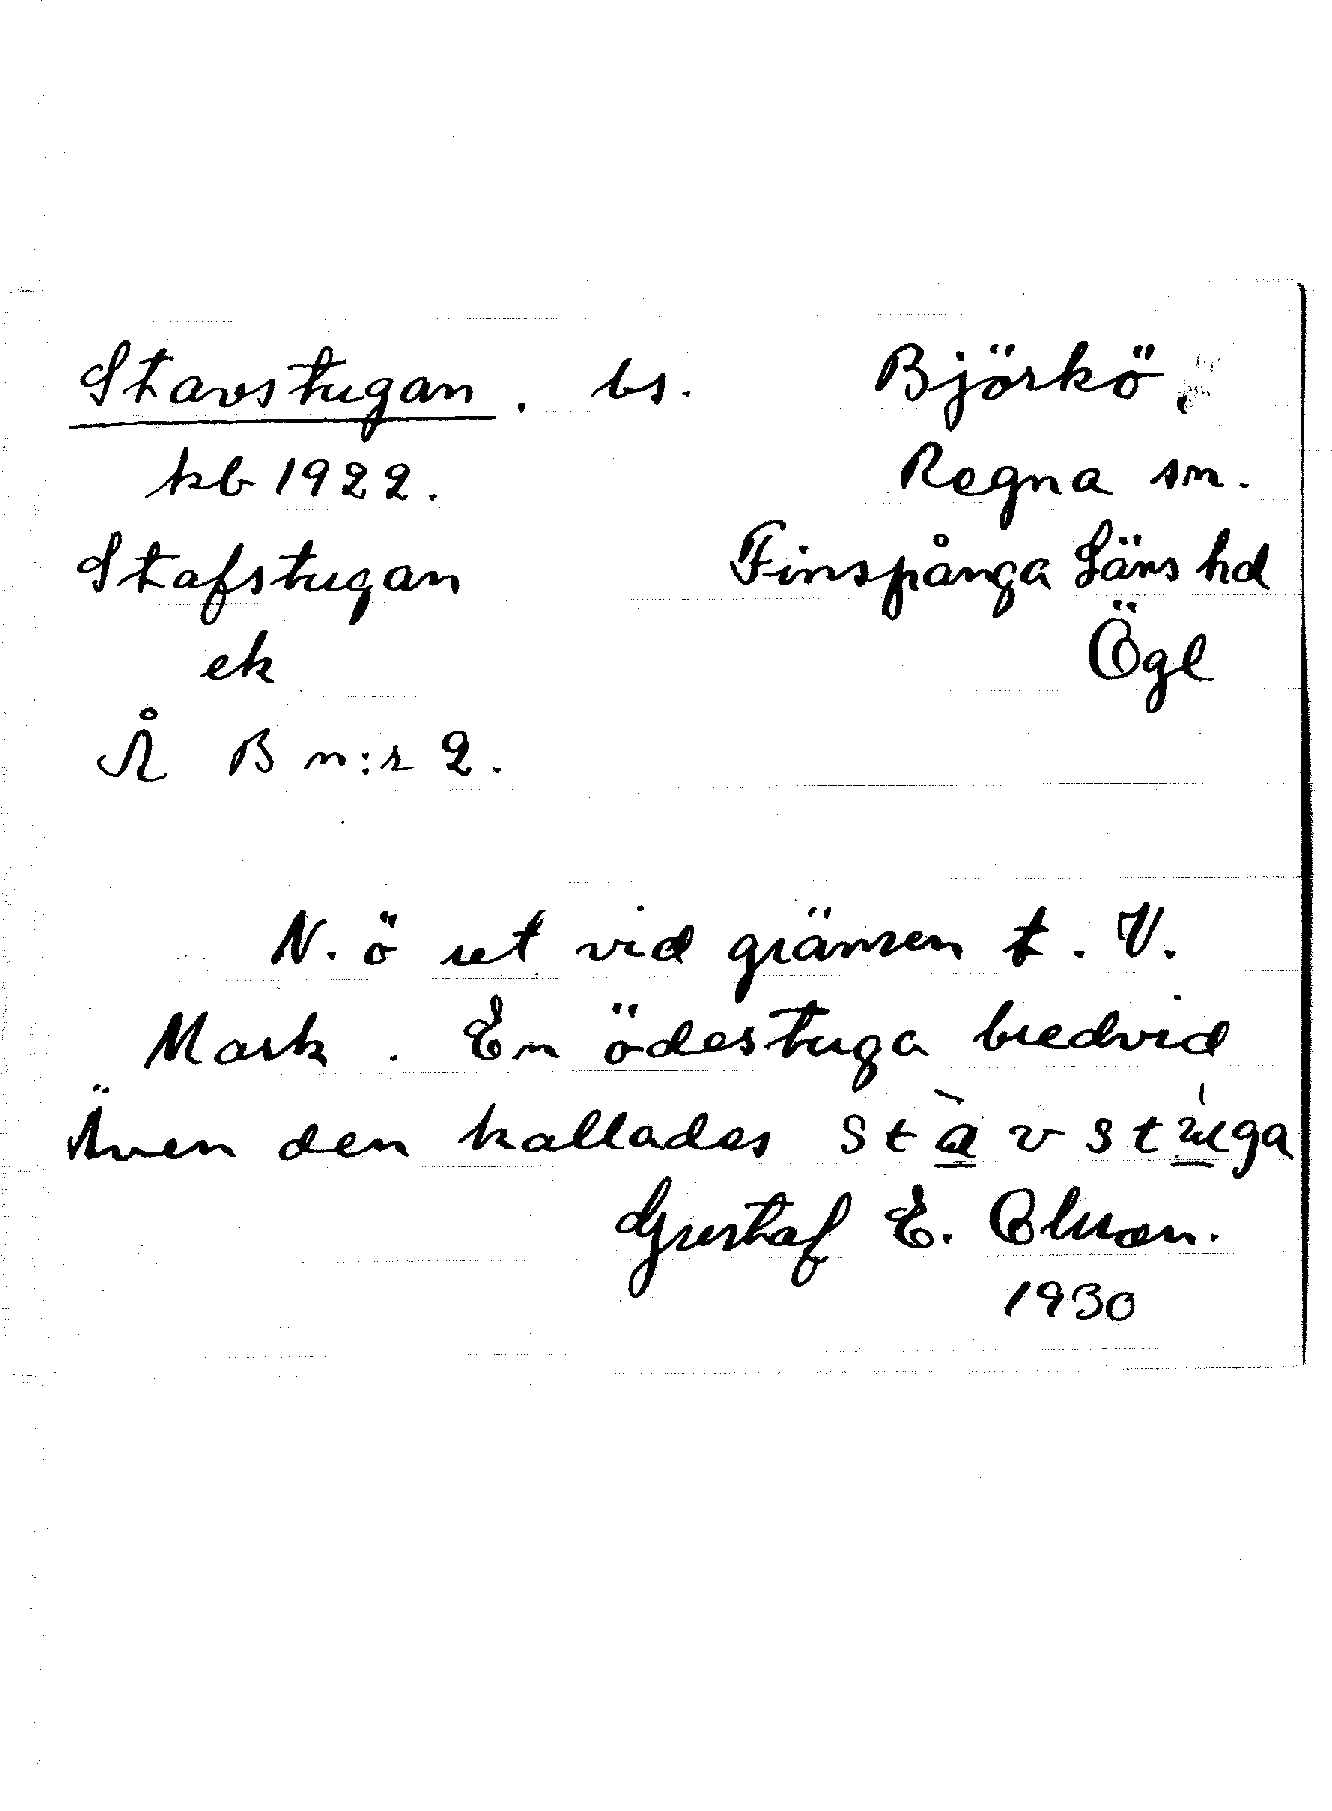 Stavstugan. bs. Björkö.
kb 1922. Regna sn.
Stafstugan Finspånga Läns hd
ek Ögl
Å B n:r 2.
N. ö ut vid gränsen t. V.
Mark. En ödestuga bredvid
Även den kallades stàvstúga
Gustaf E.
1930